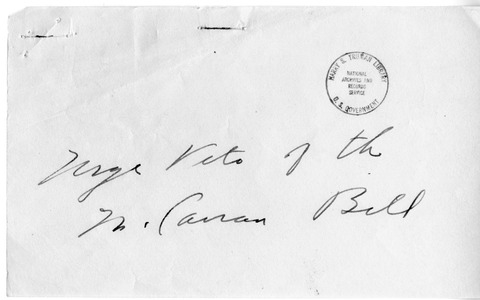 HARRY S. TRUMAN LIBRARY
NATIONAL
ARCHIVES AND
RECORDS
SERVICE
U. S. GOVERNMENT
Urge Veto of the
Mc. Carran Bill